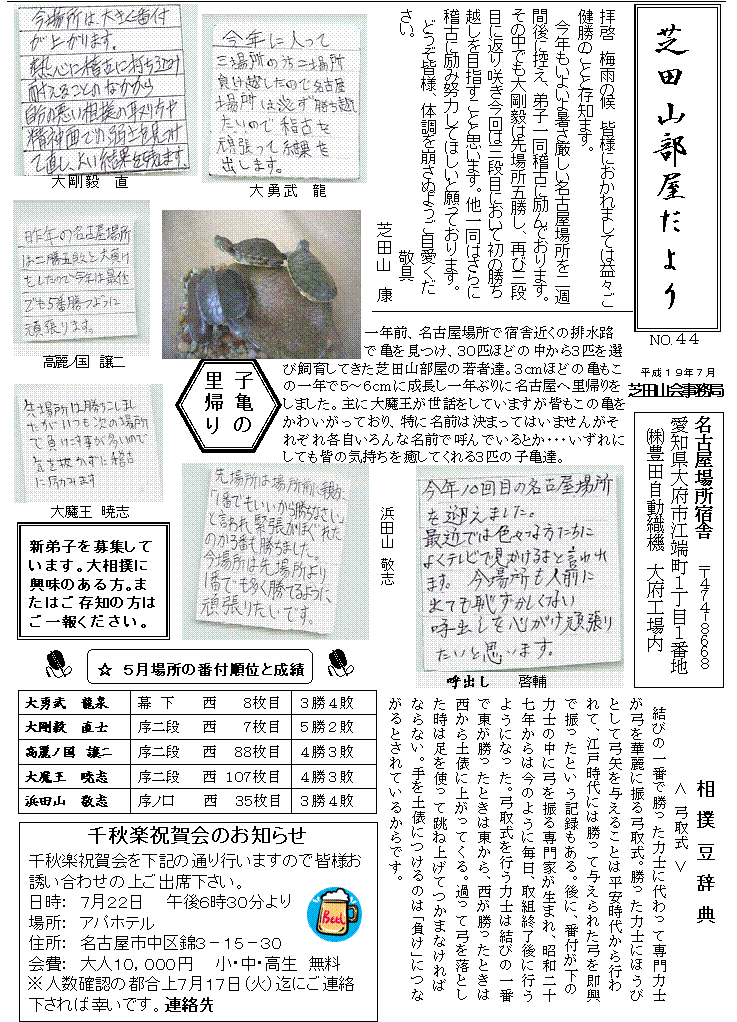 芝田山部屋だより
NO.44
平成19年7月
芝田山会事務局
拝啓　梅雨の候　皆様におかれましては益々ご
健勝のことと存知ます。
　今年もいよいよ暑さ厳しい名古屋場所を二週
間後に控え、弟子一同稽古に励んでおります。
その中でも大剛毅は先場所五勝し、再び三段
目に返り咲き今回は三段目において初の勝ち
越しを目指すことと思います。他一同はさらに
稽古に励み努力してほしいと願っております。
　どうぞ皆様、体調を崩さぬようご自愛くだ
さい。
敬具
芝田山　康
今年に入って
三場所の方二場所
負け越したので名古屋
場所は必ず勝ち越し
たいので稽古を
頑張って結果を
出します。
大勇武　龍
今場所は大きく番付
が上がります。
熱心に稽古に打ち込み
耐えることのなかから
自分の悪い相撲の取り方や
精神面での弱さを見つけ
て直し、よい結果を残します。
大剛毅　直
昨年の名古屋場所
は二勝五敗と大負け
をしたので今年は最低
でも5番勝つように
頑張ります。
高麗ノ国　譲二
子亀の
里帰り
一年前、名古屋場所で宿舎近くの排水路
で亀を見つけ、30匹ほどの中から3匹を選
び飼育してきた芝田山部屋の若者達。3cmほどの亀もこ
の一年で5～6cmに成長し一年ぶりに名古屋へ里帰りを
しました。主に大魔王が世話をしていますが皆もこの亀を
かわいがっており、特に名前は決まってはいませんがそ
れぞれ各自いろんな名前で呼んでいるとか・・・いずれに
しても皆の気持ちを癒してくれる3匹の子亀達。
先場所は勝ちこしまし
たがいつも次の場所
で負ける事が多いので
気を抜かずに稽古
に励みます
大魔王　暁志
先場所は場所前に親方に
「1番でもいいから勝ちなさい」
と言われ緊張がほぐれた
のか3番も勝ちました。
今場所は先場所より
1番でも多く勝てるように
頑張りたいです。
浜田山　敬志
今年10回目の名古屋場所
を迎えました。
最近では色々な方たちに
よくテレビで見かけるよと言われ
ます。今場所も人前に
出ても恥ずかしくない
呼出しを心がけ頑張り
たいと思います。
呼出し　啓輔
名古屋場所宿舎　〒474-8668
愛知県大府市江端町1丁目1番地
㈱豊田自動織機　大府工場内
新弟子を募集して
います。大相撲に
興味のある方。ま
たはご存知の方は
ご一報ください。
☆ 5月場所の番付順位と成績
大勇武　龍泉　幕　下　西　8枚目　3勝4敗
大剛毅　直士　序二段　西　7枚目　5勝2敗
高麗ノ国　譲二　序二段　西　88枚目　4勝3敗
大魔王　暁志　序二段　西　107枚目　4勝3敗
浜田山　敬志　序ノ口　西　35枚目　3勝4敗
千秋楽祝賀会のお知らせ
千秋楽祝賀会を下記の通り行いますので皆様お
誘い合わせの上ご出席下さい。
日時:　7月22日　午後6時30分より
場所:　アパホテル
住所:　名古屋市中区錦3－15－30
会費:　大人10,000円　小・中・高生　無料
※人数確認の都合上7月17日(火)迄にご連絡
下されば幸いです。連絡先
Beer
相撲豆辞典
＜弓取式＞
　結びの一番で勝った力士に代わって専門力士
が弓を華麗に振る弓取式。勝った力士にほうび
として弓矢を与えることは平安時代から行わ
れて、江戸時代には勝って与えられた弓を即興
で振ったという記録もある。後に、番付が下の
力士の中に弓を振る専門家が生まれ、昭和二十
七年からは今のように毎日、取組終了後に行う
ようになった。弓取式を行う力士は結びの一番
で東が勝ったときは東から、西が勝ったときは
西から土俵に上がってくる。過って弓を落とし
た時は足を使って跳ね上げてつかまなければ
ならない。手を土俵につけるのは「負け」につな
がるとされているからです。